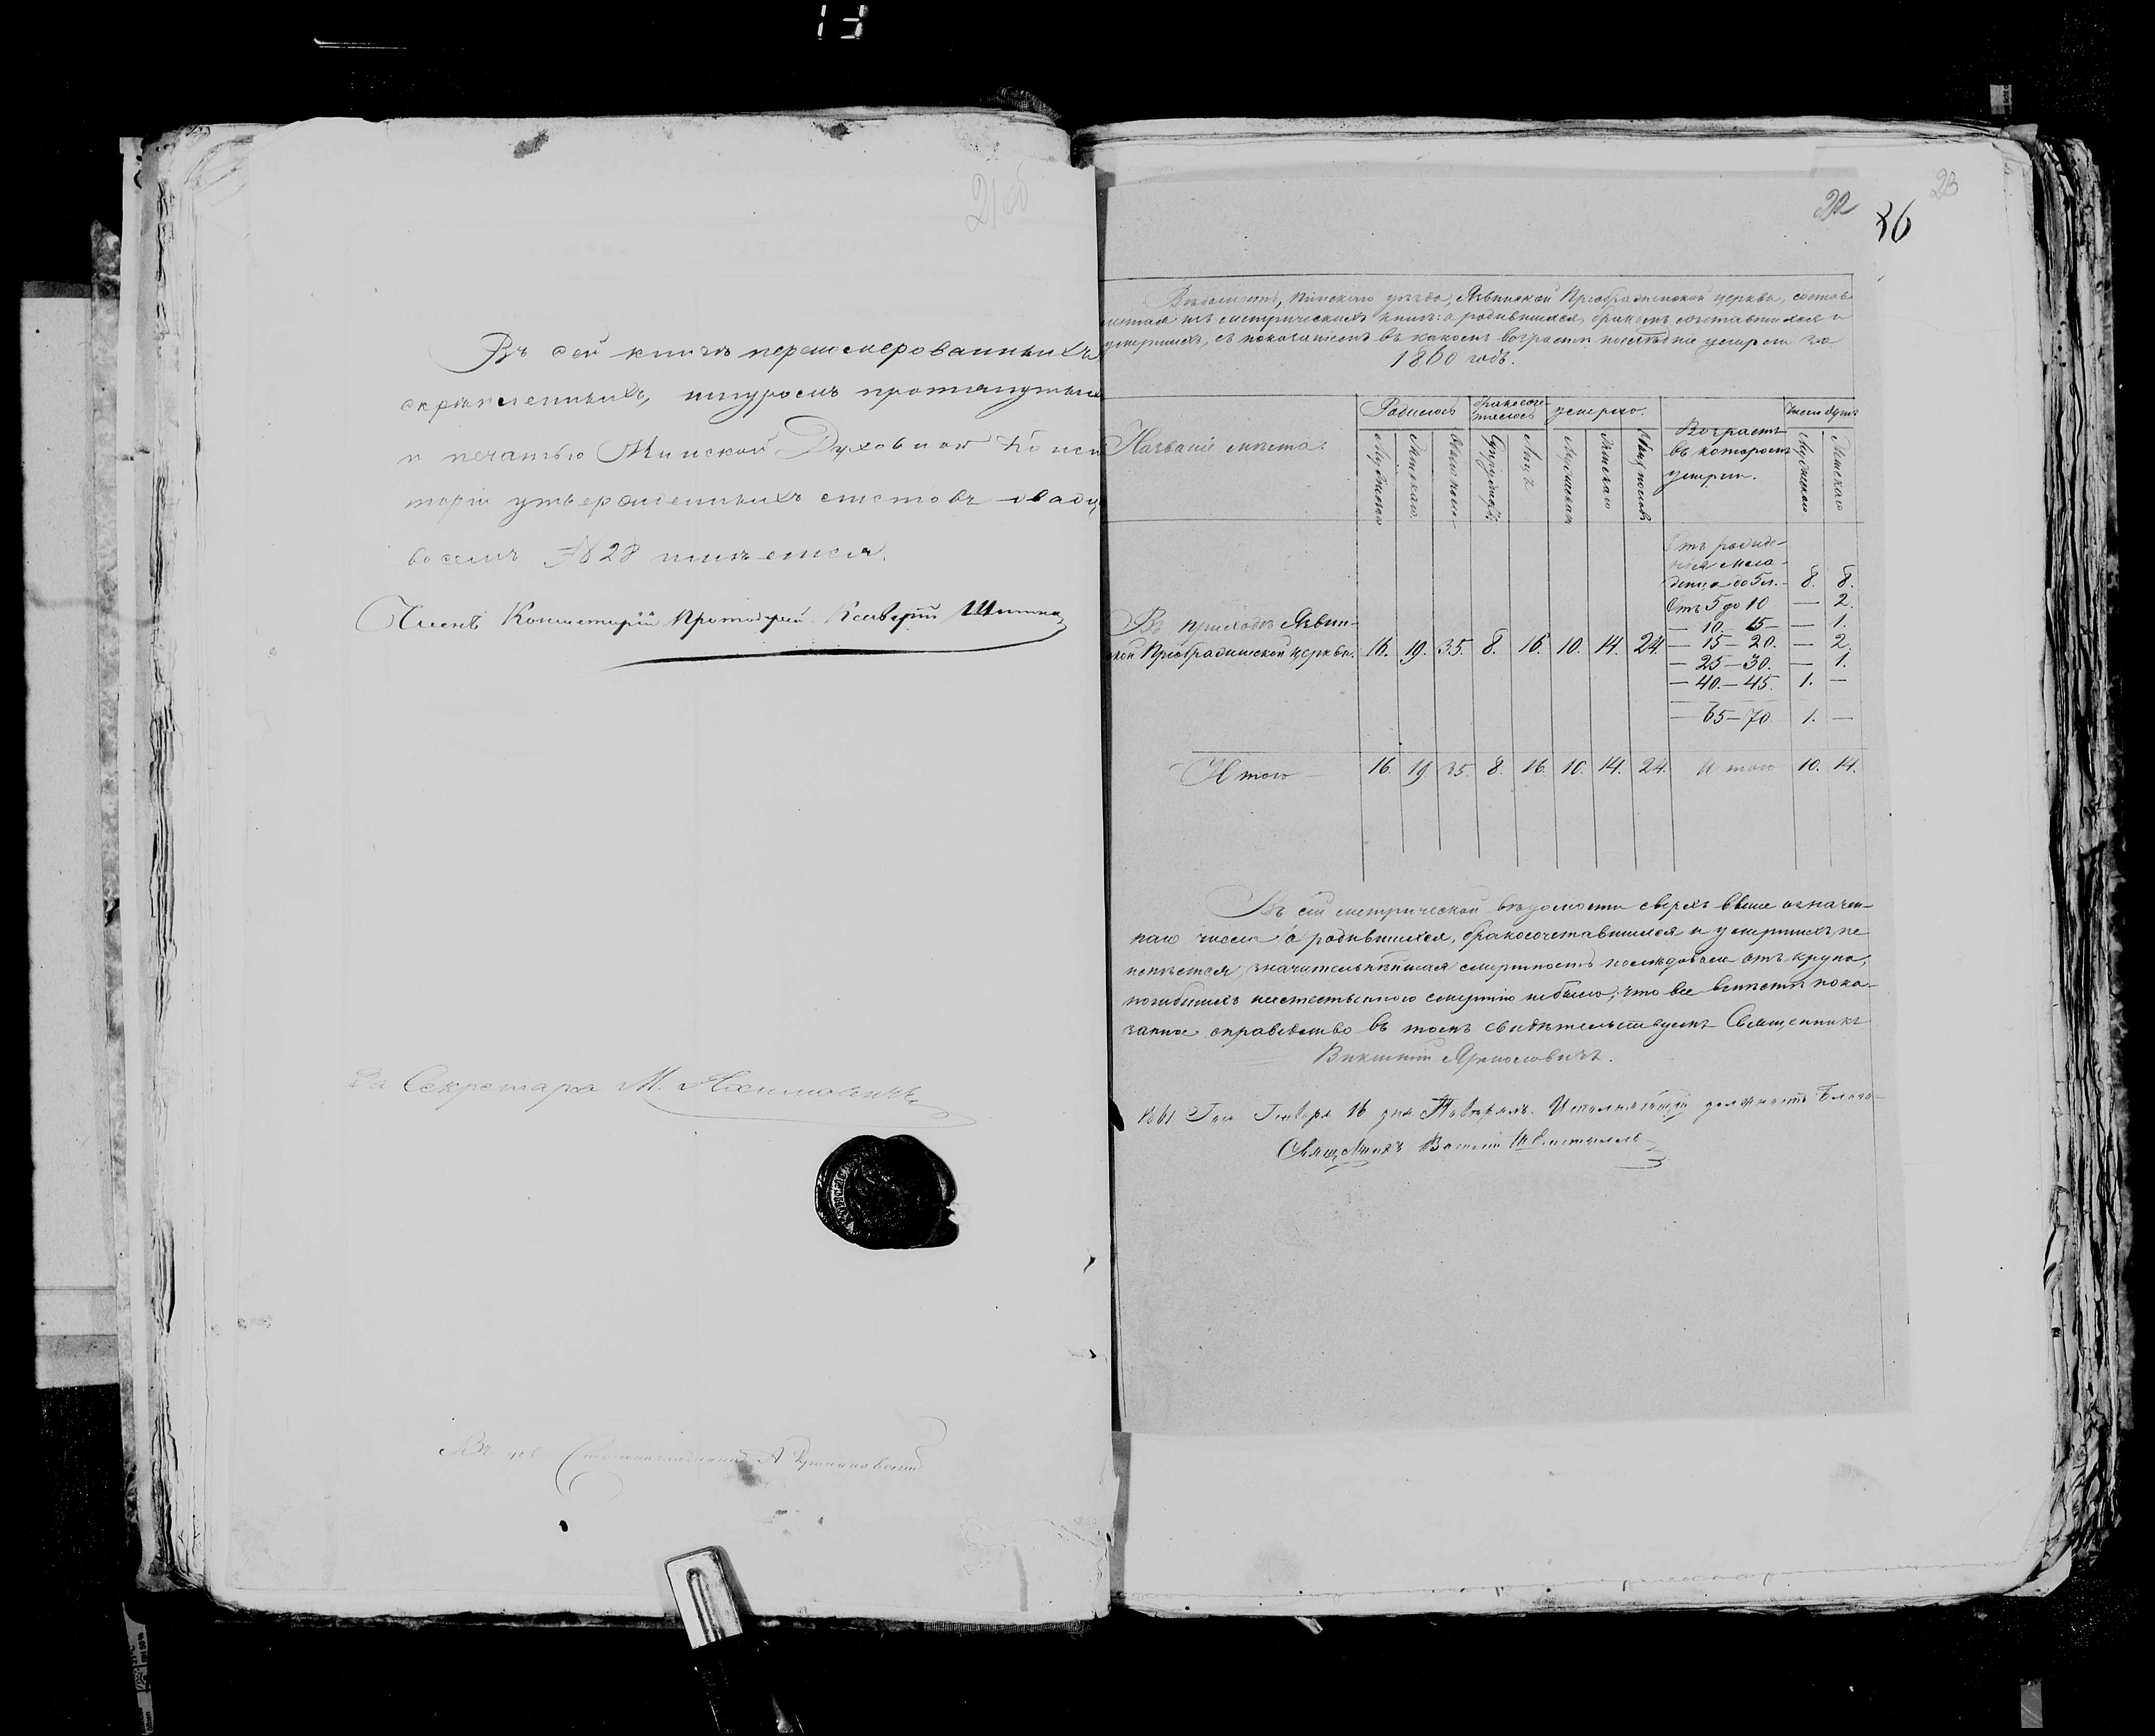 21 об
Въ сей книгѣ перенумерованныхъ
скрѣпленныхъ, шнуромъ протянутыхъ
и печатью Минской Духовной Конси
торіи утвержденныхъ листовъ двадц
восемь № 28 имѣется.
Членъ Консисторіи Протоіерей
За Секретаря М.
22
36
23
Вѣдомость, Пинскаго уѣзда, Язвинской Преображенской церкви, состав
ленная изъ метрическихъ книгъ: о родившихся, бракомъ сочетавшихся и
умершихъ, съ показаніемъ въ какомъ возрастѣ послѣдніе умерли за
1860 годъ.
Названіе мѣста.
Родилось
Бракосоче-
талось
умерло.
Мужескаго
Женскаго.
Обоего пола
Супружествъ
Лицъ
Мужескаго
Женскаго
Обоихъ половъ
Возрастъ
въ которомъ
умерли.
Число душъ
Мужескаго
Женскаго
Въ приходѣ Язвин-
ской Преображенской церкви. 16. 19. 35. 8. 16. 10. 14. 24.
Отъ рожде-
нія мла-
денца до 5 л. 8. 8.
Отъ 5 до 10 — 2.
— 10. 15 — — 1.
— 15 — 20. — 2.
— 25 — 30. — 1.
— 40. — 45. 1. —
— 65 — 70. 1. —
Итого — 16. 19 35. 8. 16. 10. 14. 24. Итого 10. 14.
Въ сей метрической вѣдомости сверхъ выше означен-
наго числа о родившихся, бракосочетавшихся и умершихъ не
имѣется, значительнѣйшая смертность послѣдовала отъ крупа,
погибшихъ неестественною смертію небыло; что все вмѣстѣ пока-
занное справедливо въ томъ свидѣтельствуетъ Священникъ
Викентій
1861 Года Генваря 16 дня Повѣрялъ. Исполняющій должность Благо-
Священникъ Василій